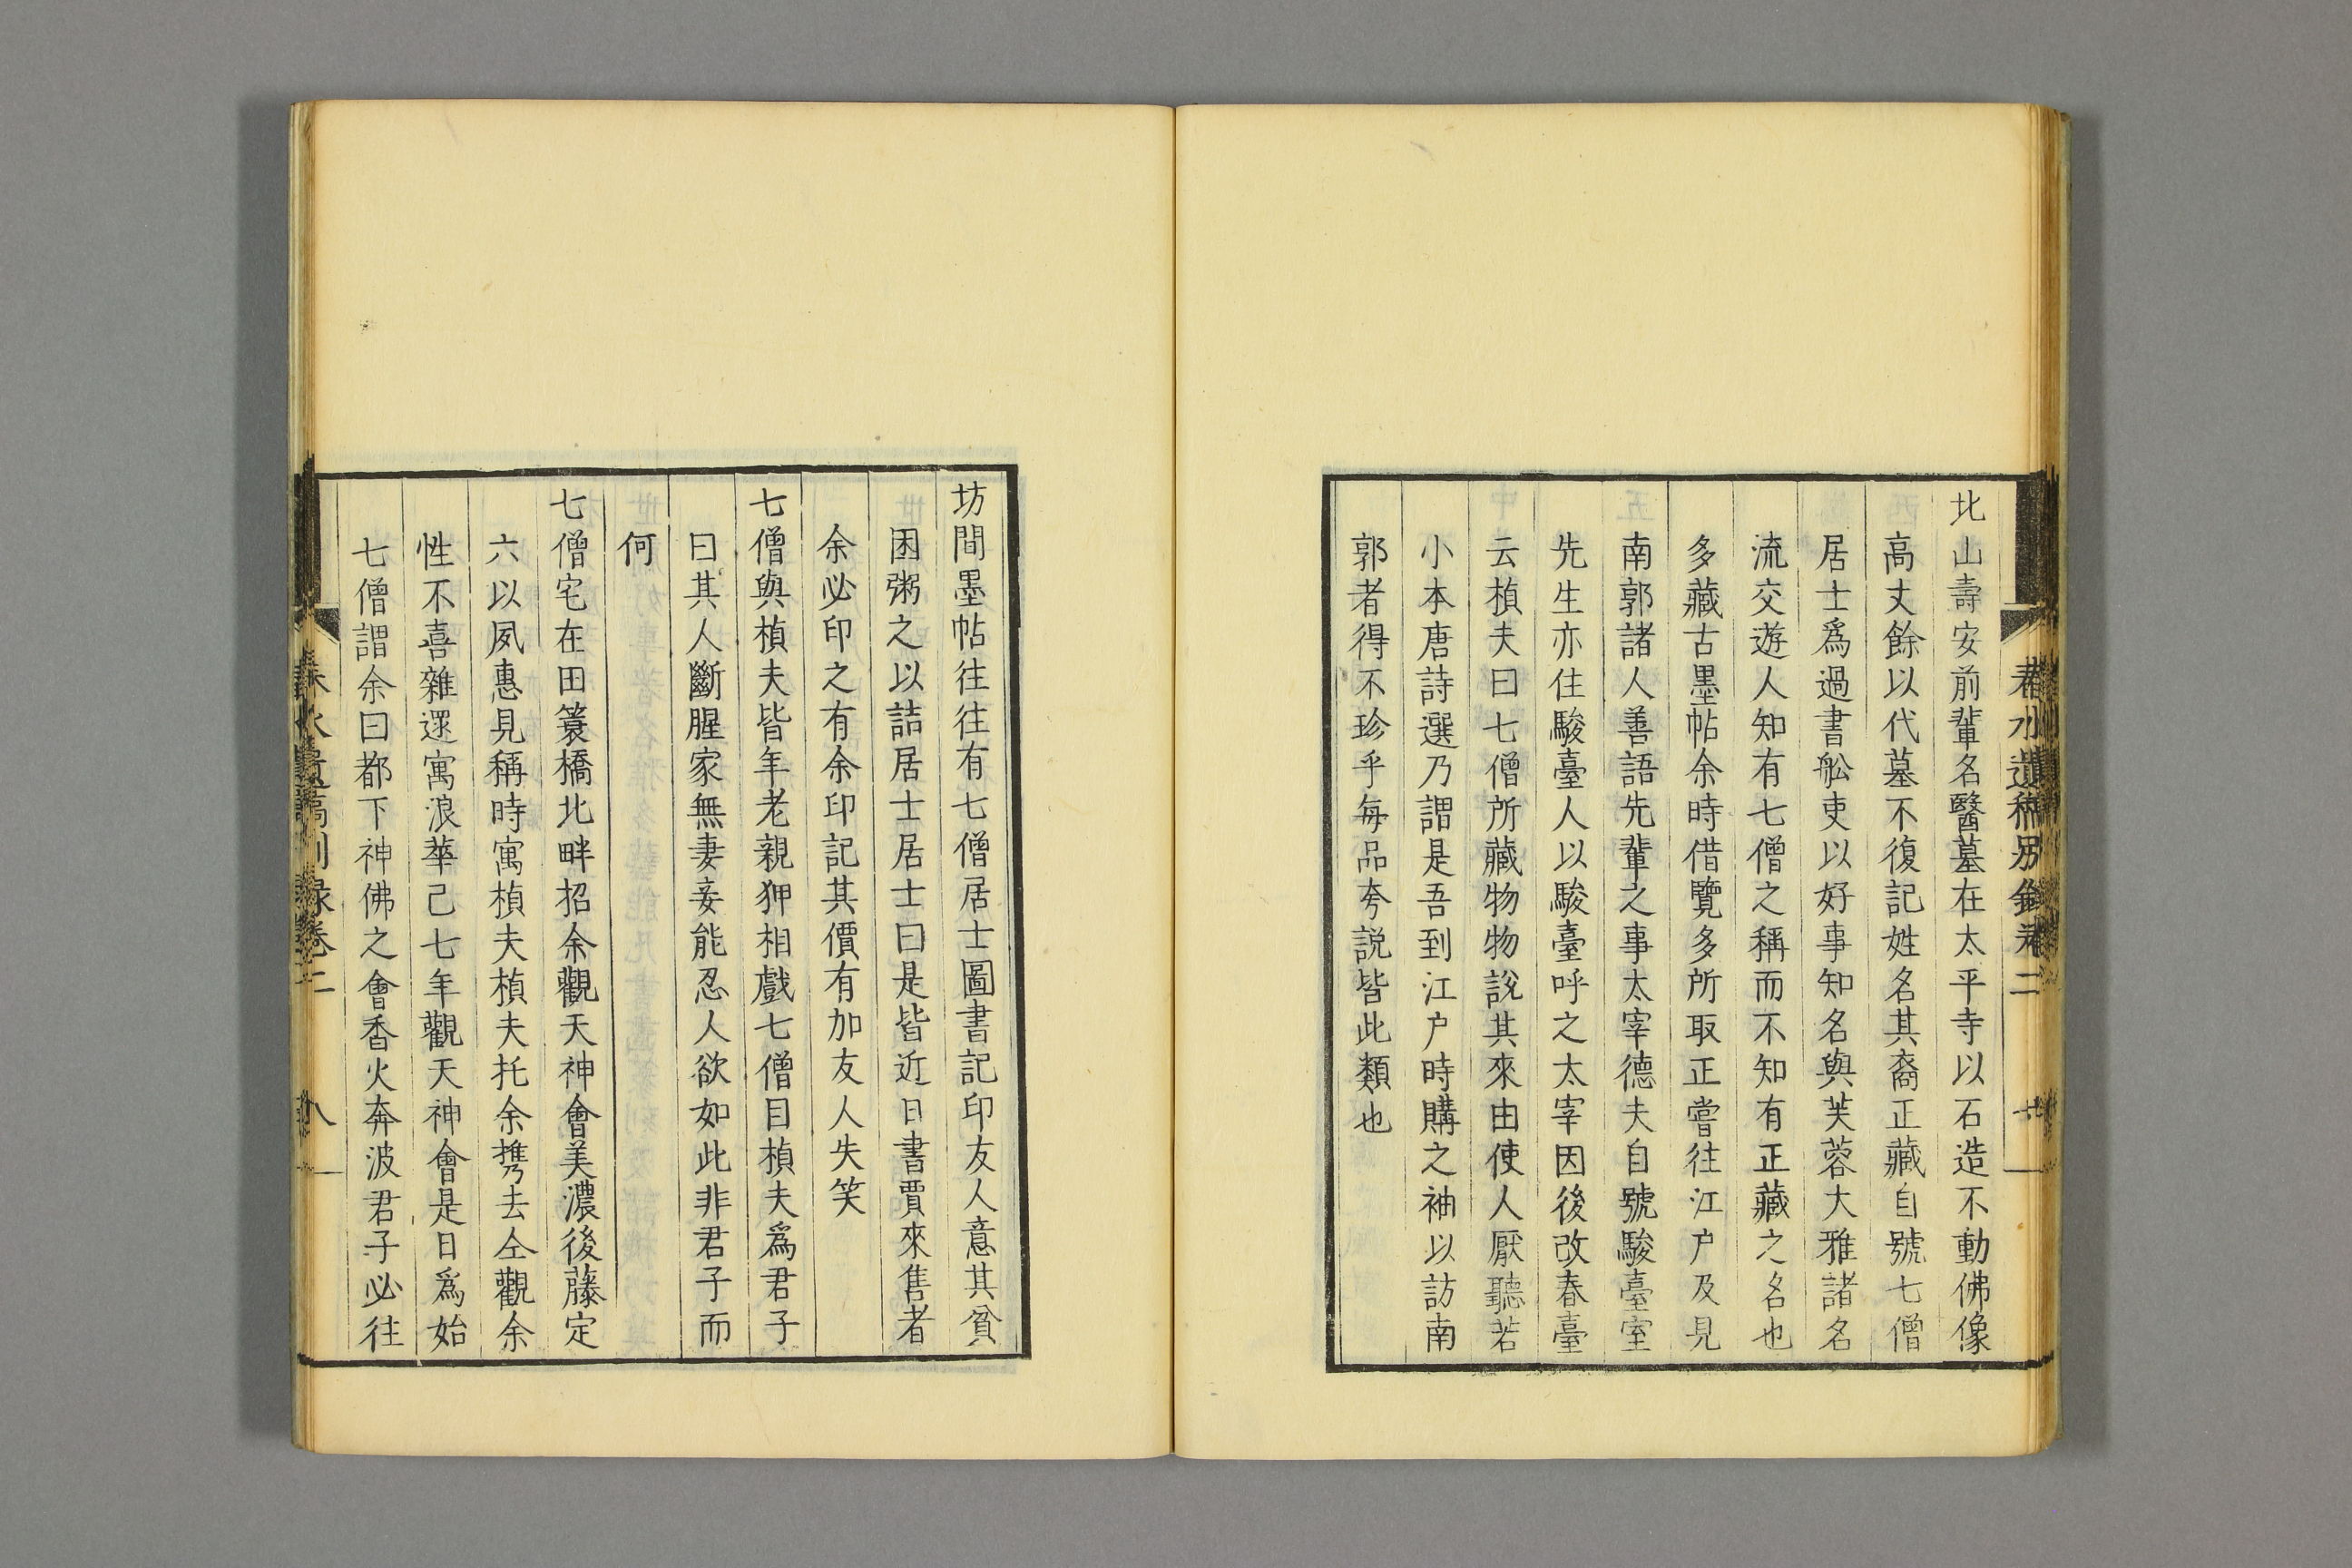 北山壽安前輩名醫墓在太平寺以石造不動佛像
高丈餘以代墓不復記姓名其裔正藏自號七僧
居士爲過書舩吏以好事知名與芙蓉大雅諸名
流交遊人知有七僧之稱而不知有正藏之名也
多藏古墨帖余時借覽多所取正嘗往江户及見
南郭諸人善語先輩之事太宰德夫自號駿臺室
先生亦住駿臺人以駿臺呼之太宰因後改春臺
云楨夫曰七僧所藏物物說其來由使人厭聽若
小本唐詩選乃謂是吾到江户時購之袖以訪南
郭者得不珍乎每品夸説皆此類也
坊間墨帖往往有七僧居士圖書記印友人意其貧
困粥之以詰居士居士曰是皆近日書賈來售者
余必印之有余印記其價有加友人失笑
七僧與楨夫皆年老親狎相戲七僧目楨夫爲君子
曰其人斷腥家無妻妾能忍人欲如此非君子而
何
七僧宅在田簑橋北畔招余觀天神會美濃後藤定
六以夙惠見稱時寓楨夫楨夫托余攜去仝觀余
性不喜雜遝寓浪華己七年觀天神會是日爲始
七僧謂余曰都下神佛之會香火奔波君子必往
春水遺稿別錄卷二
八